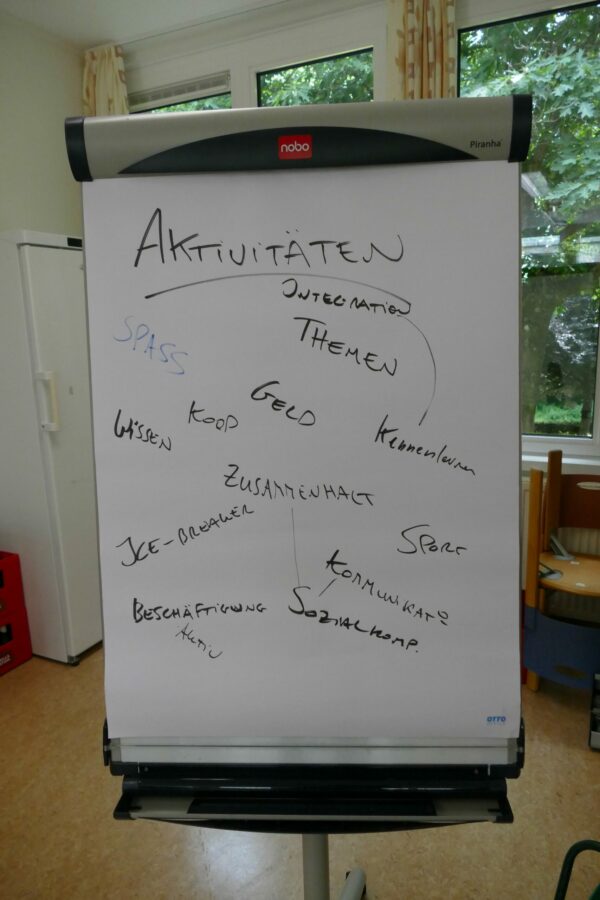 nobo
Piranha
AKTIVITÄTEN
INTEGRATION
THEMEN
SPASS
GELD
KOOP
WISSEN
Kennenlernen
ZUSAMMENHALT
ICE-BREAKER
SPORT
KOMMUNIKATO
BESCHÄFTIGUNG
SOZIALKOMP.
AKTIV
OTTO